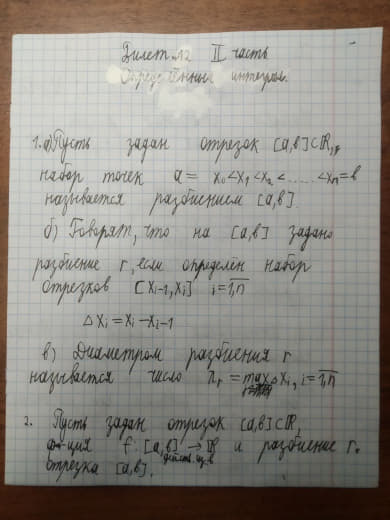 Билет 12 II часть
Определённый интеграл.
1. а) Пусть задан отрезок [a,b]⊂ℝ,
набор точек a = x₀<x₁<x₂<.....<xₙ=b
называется разбиением [a,b].
б) Говорят, что на [a,b] задано
разбиение r, если определён набор
отрезков [xᵢ₋₁,xᵢ] i=1,n
Δxᵢ = xᵢ-xᵢ₋₁
в) Диаметром разбиения r
называется число λᵣ = max Δxᵢ, i=1,n
2. Пусть задан отрезок [a,b]⊂ℝ,
ф-ция f: [a,b] → ℝ и разбиение r.
отрезка [a,b].